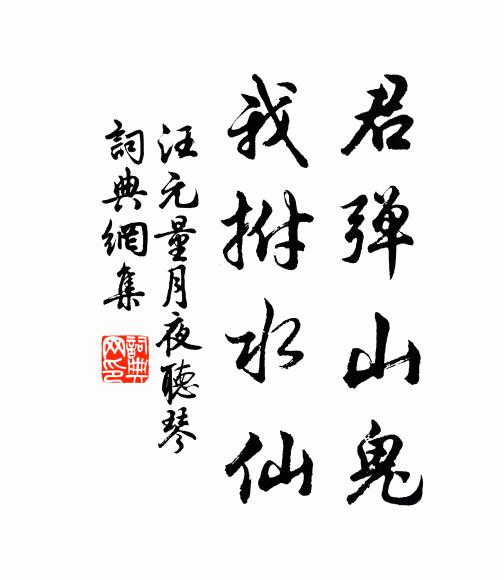 君弹山鬼
我拊水仙
汪元量月夜聽琴
詞典網集
詞典
网印